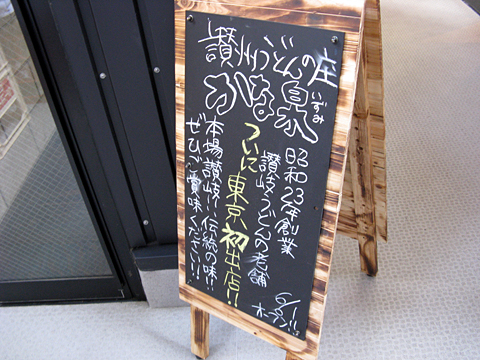 讃州うどんの庄
かな泉
いずみ
昭和23年創業
讃岐うどんの老舗
ついに東京初出店!!
本場讃岐の伝統の味を
ぜひご賞味ください!!
6/11
オープン!!